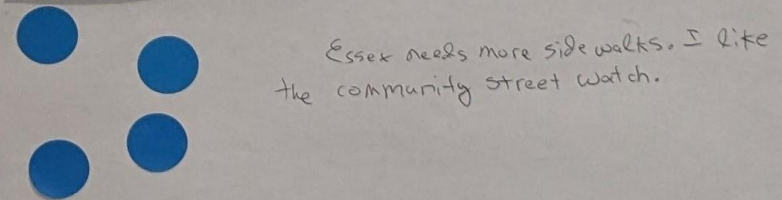 Essex needs more side walks. I like
the community street watch.